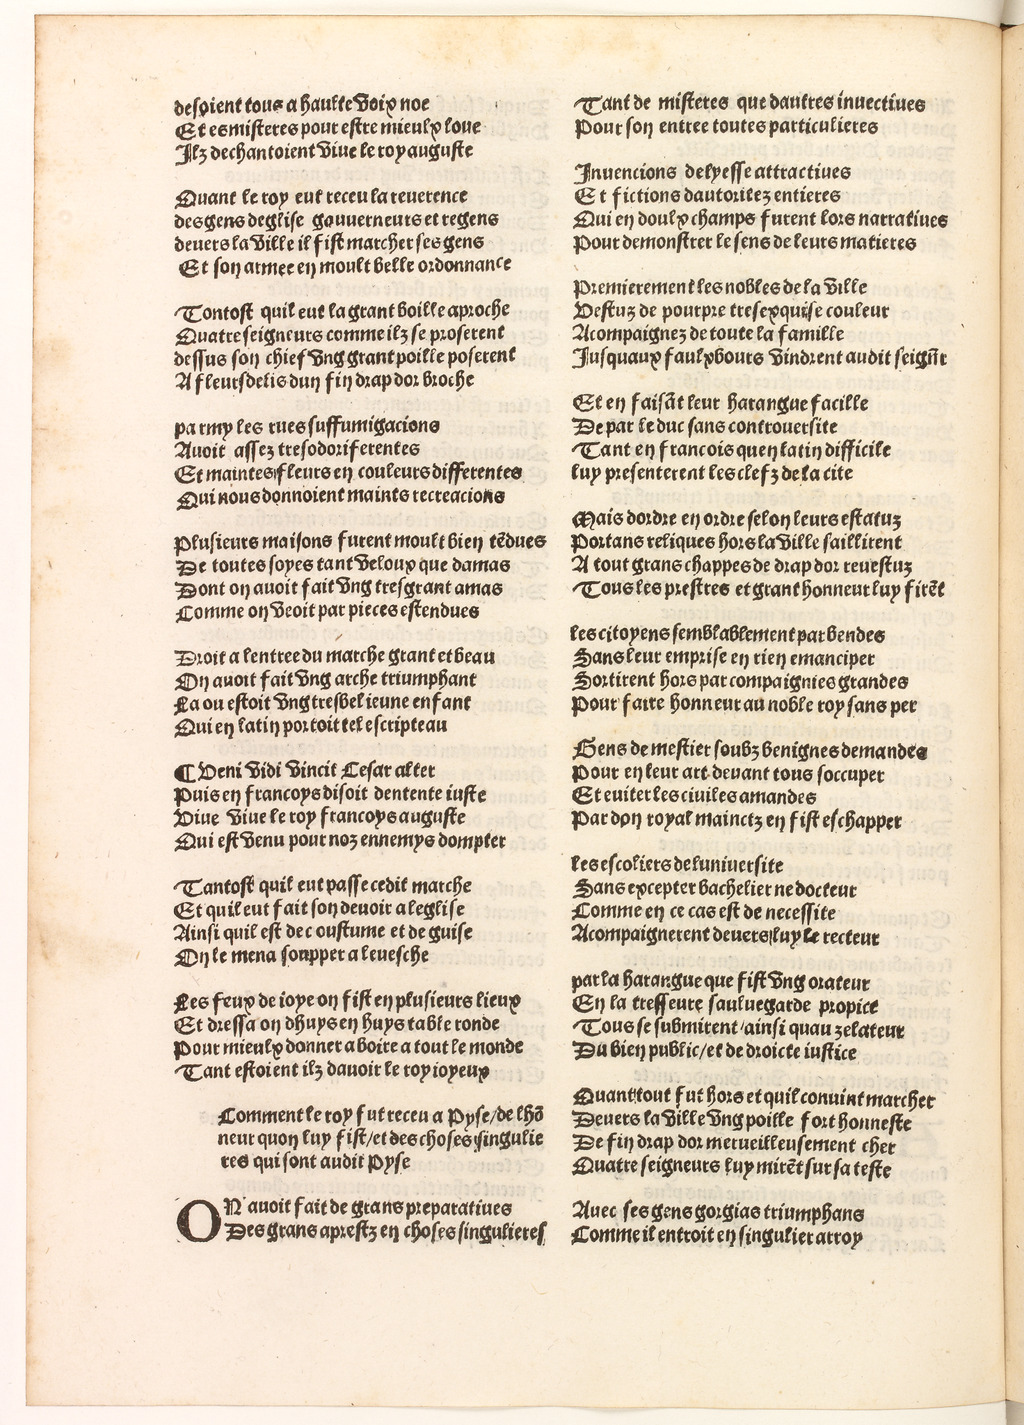 desoient tous a haulte voix noe
Et es misteres pour estre mieulx loue
Ilz dechantoient Viue le roy auguste
Quant le roy eut receu la reuerence
des gens deglise gouuerneurs et regens
deuers la ville il fist marcher ses gens
Et son armee en moult belle ordonnance
Tontost quil eut la grant boille aproche
Quatre seigneurs comme ilz se proserent
dessus son chief vng grant poille poserent
A fleurs de lis dun fin drap dor broche
par my les rues suffumigacions
Auoit assez tresodoriferentes
Et maintes fleurs en couleurs differentes
Qui nous donnoient maints recreacions
Plusieurs maisons furent moult bien tēdues
De toutes soyes tant veloux que damas
Dont on auoit fait vng tresgrant amas
Comme on veoit par pieces estendues
Droit a lentree du marche grant et beau
On auoit fait vng arche triumphant
La ou estoit vng tresbel ieune enfant
Qui en latin portoit tel escripteau
¶ Veni vidi vincit Cesar alter
Puis en francoys disoit dentente iuste
Viue viue le roy francoys auguste
Qui est venu pour noz ennemys dompter
Tantost quil eut passe cedit marche
Et quil eut fait son deuoir a leglise
Ainsi quil est de coustume et de guise
On le mena soupper a leuesche
Les feux de ioye on fist en plusieurs lieux
Et dressa on dhuys en huys table ronde
Pour mieulx donner a boire a tout le monde
Tant estoient ilz dauoir le roy ioyeux
Comment le roy fut receu a Pyse/de lhō
neur quon luy fist/et des choses singulie
res qui sont audit Pyse
ON auoit fait de grans preparatiues
Des grans aprestz en choses singulieres
Tant de misteres que dautres inuectiues
Pour son entree toutes particulieres
Inuencions de lyesse attractiues
Et fictions dautoritez entieres
Qui en doulx champs furent lors narratiues
Pour demonstrer le sens de leurs matieres
Premierement les nobles de la ville
Vestuz de pourpre tresexquise couleur
Acompaignez de toute la famille
Iusquaux faulxbours vindrent audit seign̄r
Et en faisāt leur harangue facille
De par le duc sans controuersite
Tant en francois quen latin difficile
luy presenterent les clefz de la cite
Mais dordre en ordre selon leurs estatuz
Portans reliques hors la ville saillirent
A tout grans chappes de drap dor reuestuz
Tous les prestres et grant honneur luy firēt
les citoyens semblablement par bendes
Sans leur emprise en rien emanciper
Sortirent hors par compaignies grandes
Pour faire honneur au noble roy sans per
Gens de mestier soubz benignes demandes
Pour en leur art deuant tous soccuper
Et euiter les ciuiles amandes
Par don royal mainctz en fist eschapper
les escoliers de luniuersite
Sans excepter bachelier ne docteur
Comme en ce cas est de necessite
Acompaignerent deuers luy le recteur
par la harangue que fist vng orateur
En la tresseure sauluegarde propice
Tous se submirent/ainsi quau zelateur
Du bien public/et de droicte iustice
Quant tout fut hors et quil conuint marcher
Deuers la ville vng poille fort honneste
De fin drap dor merueilleusement cher
Quatre seigneurs luy mirēt sur sa teste
Auec ses gens gorgias triumphans
Comme il entroit en singulier arroy